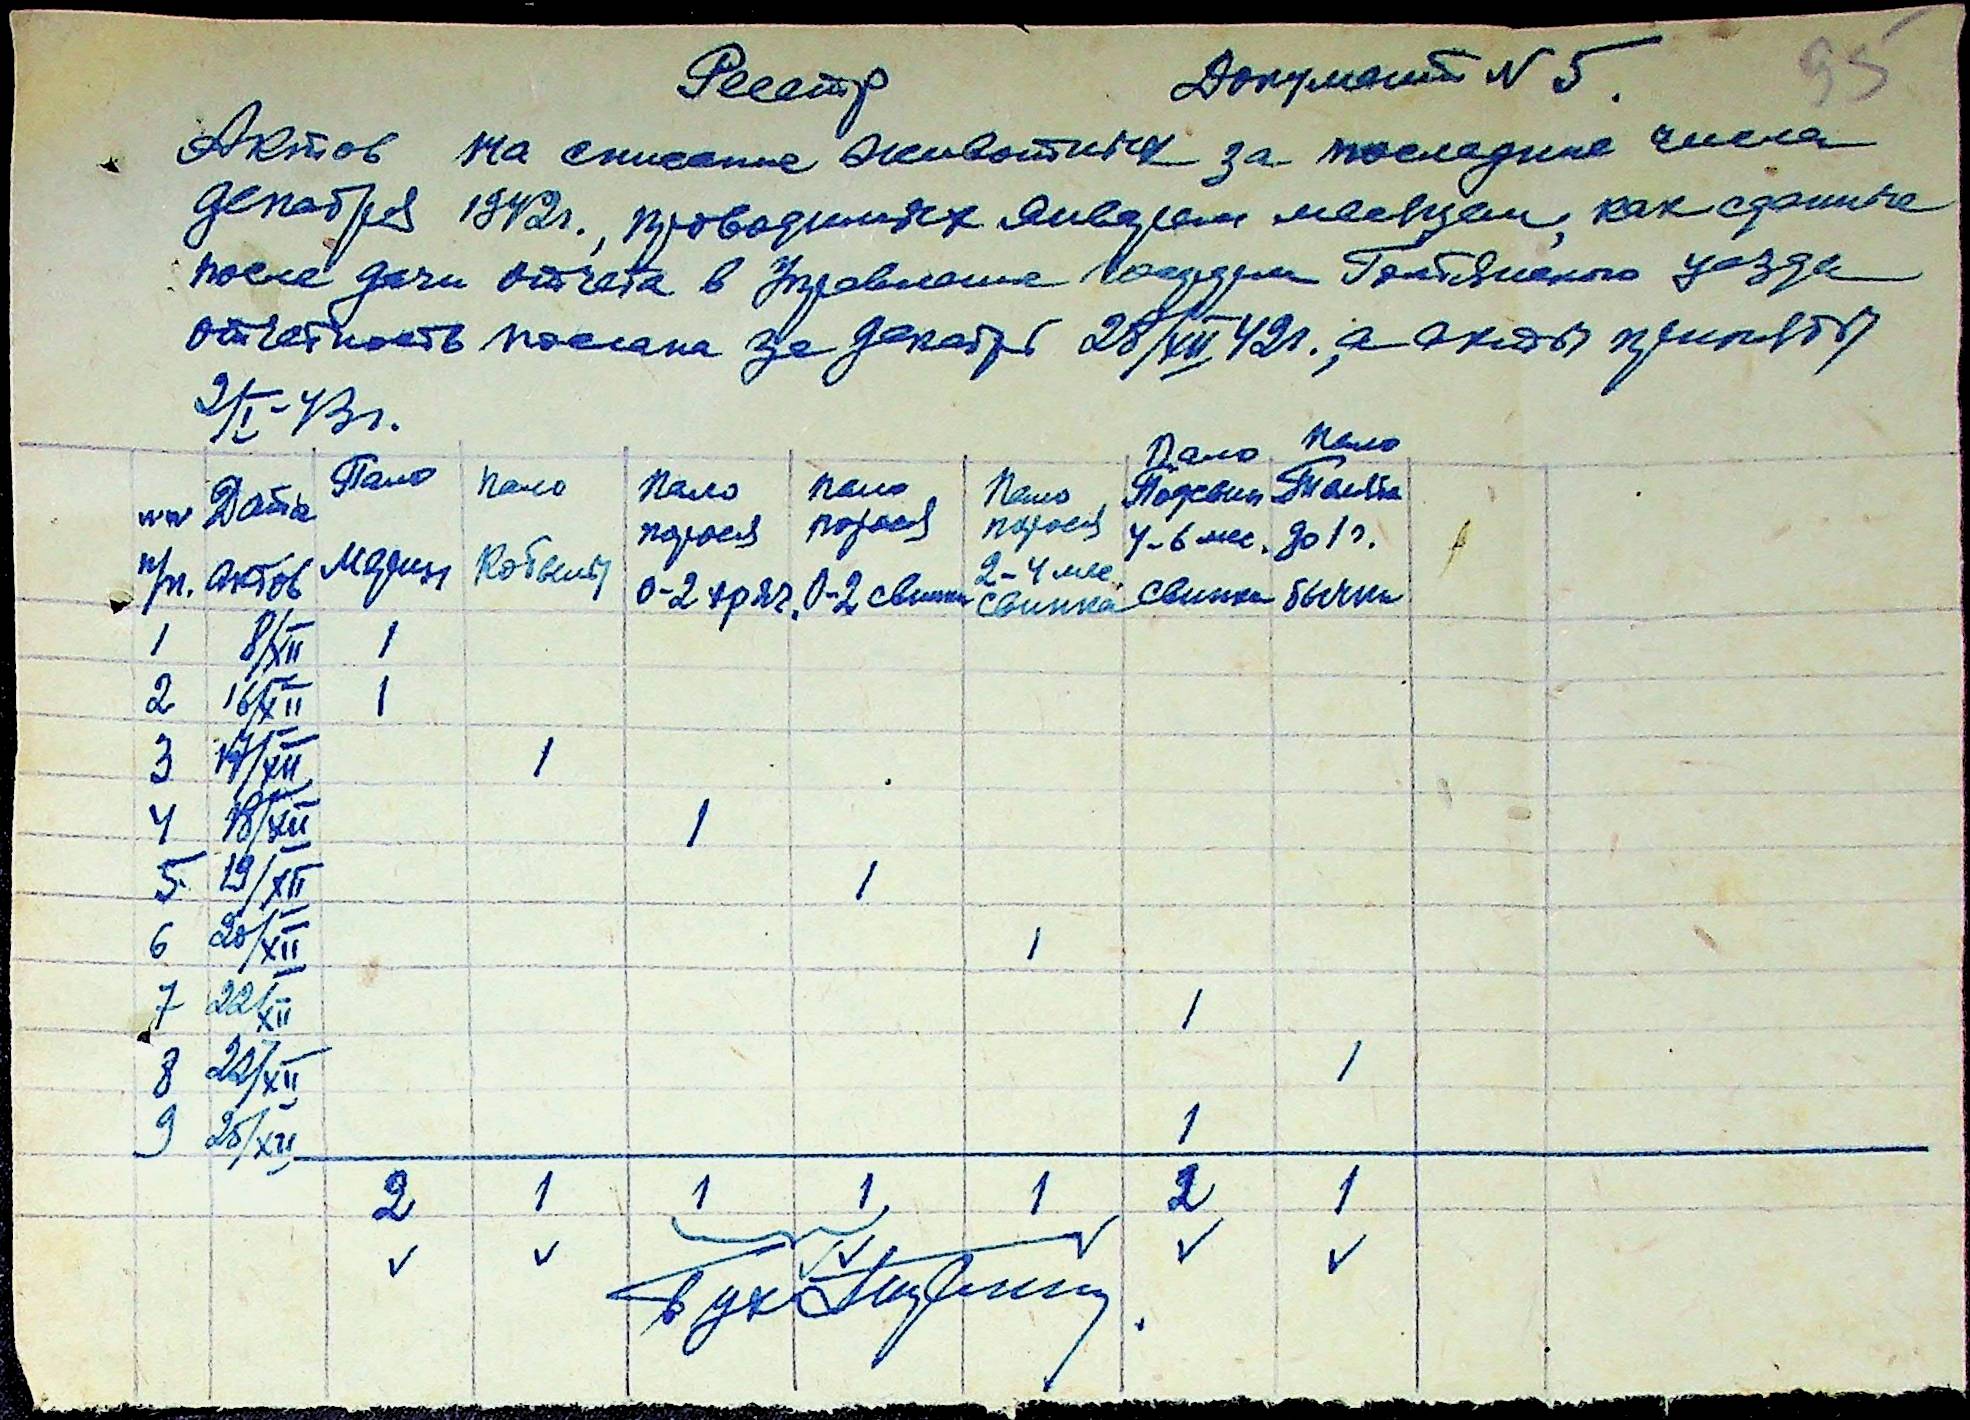 95
Реестр Документ N 5.
Актов на списание животных за последние числа
декабря 1942г., проводимых январем месяцем, как сданные
после дачи отчета в Управление уезда
отчетность послана за декабрь 25/XII 42г., а акты приняты
2/I-43г.
NN п/п. Дата актов Пало Мерин Пало Кобылы Пало порося 0-2 хряч. Пало порося 0-2 свинки Пало порося 2-4 мес. свинка Пало Подсвин 4-6 мес. свинки Пало Телята до 1 г. бычки
1 8/XII 1
2 16/XII 1
3 17/XII 1
4 18/XII 1
5 19/XII 1
6 20/XII 1
7 22/XII 1
8 22/XII 1
9 25/XII 1
2 1 1 1 1 2 1
Бух